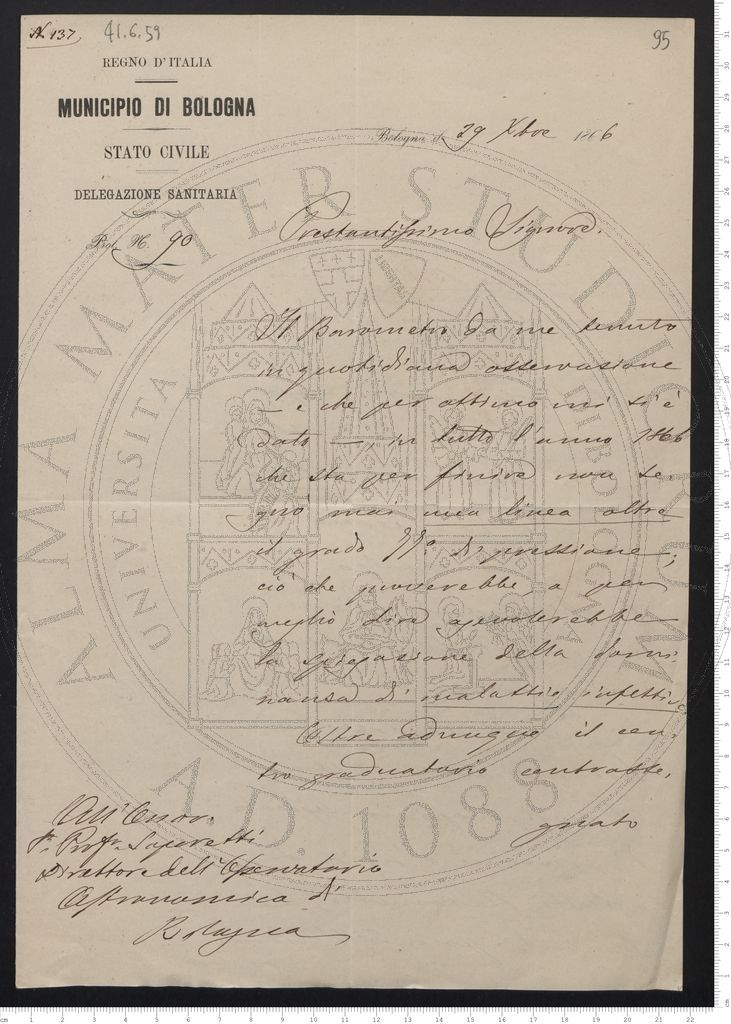 N. 137,
41.6.59
95
REGNO D'ITALIA
MUNICIPIO DI BOLOGNA
STATO CIVILE
DELEGAZIONE SANITARIA
Prot. N. 90
Bologna d. 29 Xbre 1866
Prestantissimo Signore.
Il Barometro da me tenuto
in quotidiana osservazione
— e che per ottimo mi si è
dato —, in tutto l'anno 1866
che sta per finire non se-
gnò mai una linea oltre
il grado di pressione;
ciò che proverebbe, o per
meglio dire agevolerebbe
la spiegazione della domi-
nanza di malattie infettive.
Oltre adunque il cen-
tro graduatorio contrasse,
gnato
All'Onor.
Sr. Profr. Saporetti
Direttore dell'Osservatorio
Astronomico di
Bologna
ALMA MATER STUDIORUM
UNIVERSITA DI BOLOGNA
LIBERTAS
A.D. 1088